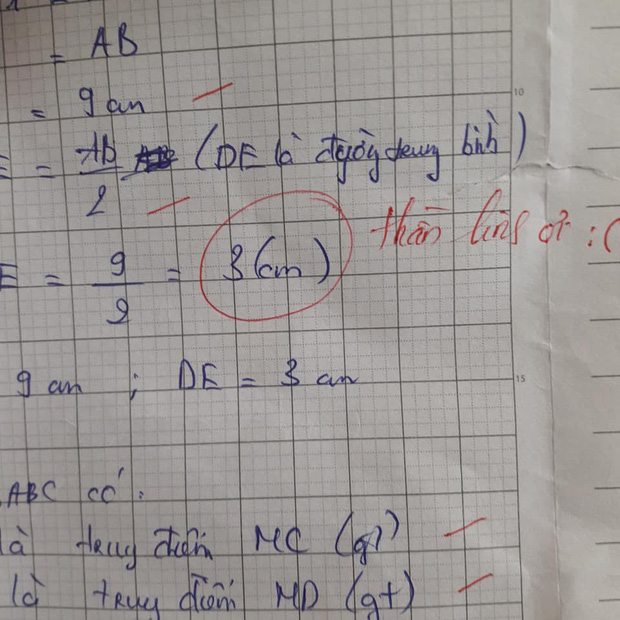 = AB
= 9 cm
10
E = AB / 2 (DE là đường trung bình)
E = 9 / 2 = 3 (cm) thần linh ơi :(
9 cm ; DE = 3 cm
15
ABC có:
là trung điểm MC (gt)
là trung điểm MD (gt)